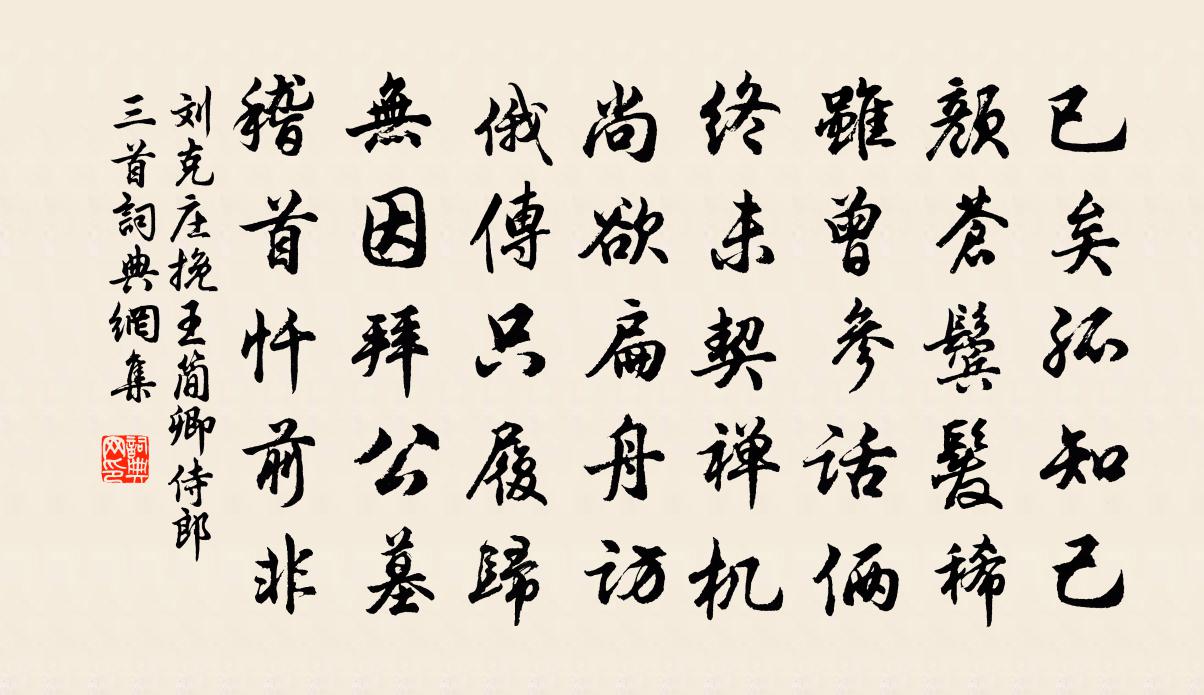 已矣孤知己
顏蒼鬓髮稀
雖曾參話俩
終未契禅机
尚欲扁舟访
俄傳只履歸
無因拜公墓
稽首忏前非
刘克庄挽王简卿侍郎
三首詞典網集
詞典网印